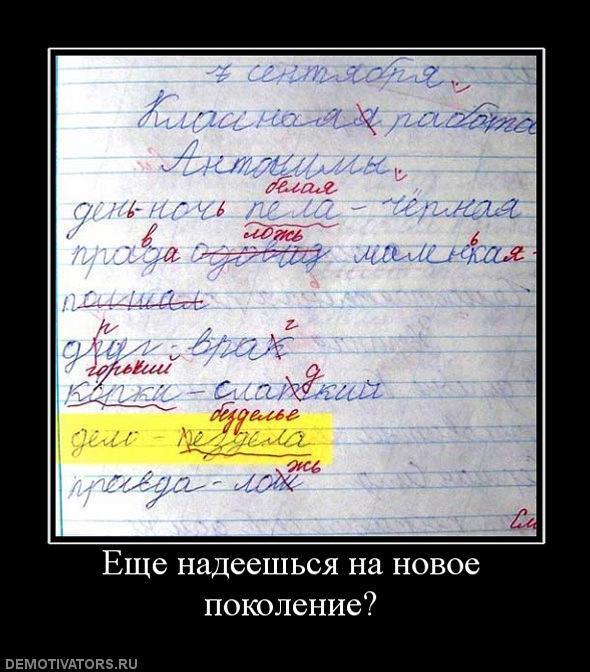 7 сентября.
Классная работа
Антонимы.
белая
день-ночь пела - чёрная
в ложь ь
правда маленкая -
р г
друг - врак
горький д
коржи - слаткий
безделье
дело - пездела
жь
правда - лош
См
Еще надеешься на новое
поколение?
DEMOTIVATORS.RU